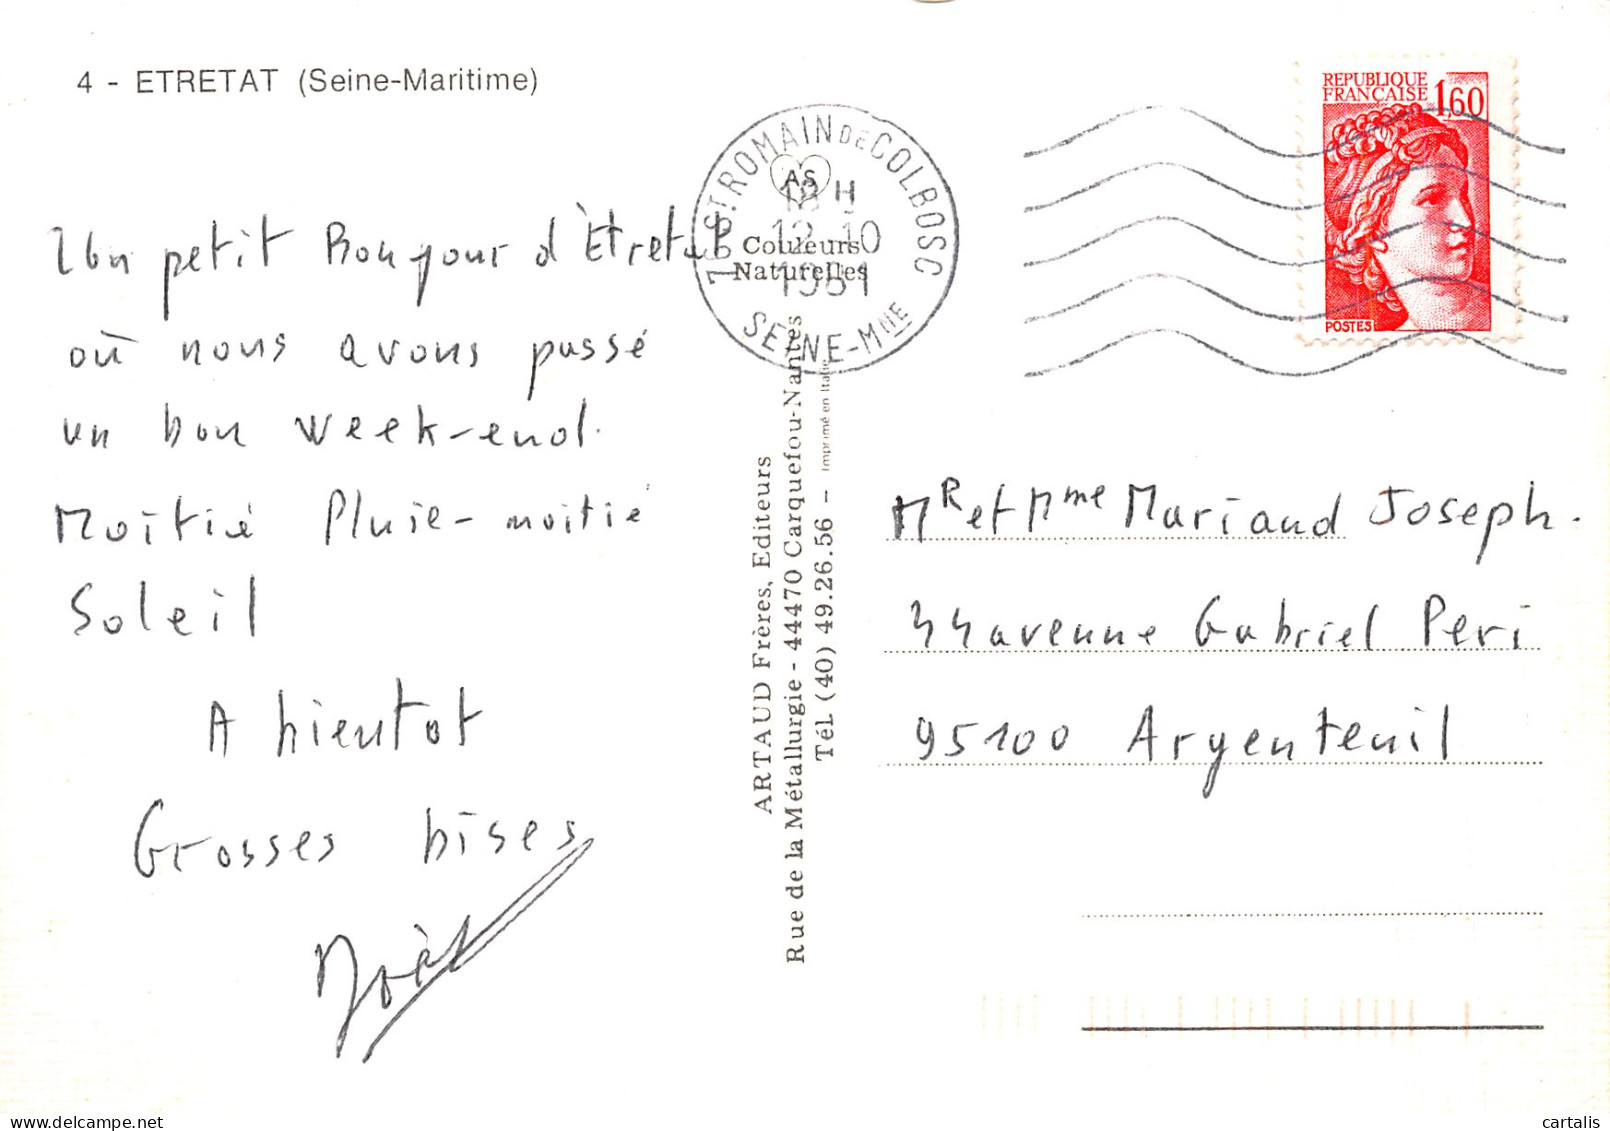 4 - ETRETAT (Seine-Maritime)
Un petit Bonjour d'Etretat
où nous avons passé
un bon week-end.
Moitié Pluie - moitié
Soleil
A bientot
Grosses bises
Noël
76 ST ROMAIN DE COLBOSC
18 H
12-10
1981
SEINE-MME
AS
Couleurs
Naturelles
ARTAUD Frères, Editeurs
Rue de la Métallurgie - 44470 Carquefou-Nantes
Tél. (40) 49.26.56 - Imprimé en Italie
REPUBLIQUE
FRANÇAISE 1,60
POSTES
MR et Mme Mariaud Joseph.
44 avenue Gabriel Peri
95100 Argenteuil
cartalis